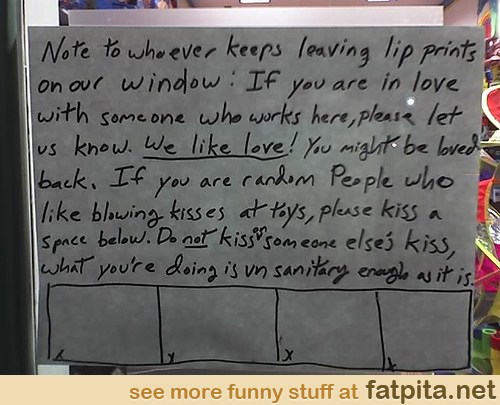 Note to whoever keeps leaving lip prints
on our window: If you are in love
with someone who works here, please let
us know. We like love! You might be loved
back. If you are random People who
like blowing kisses at toys, please kiss a
space below. Do not kiss someone else's kiss,
what you're doing is unsanitary enough as it is.
x x x x
see more funny stuff at fatpita.net